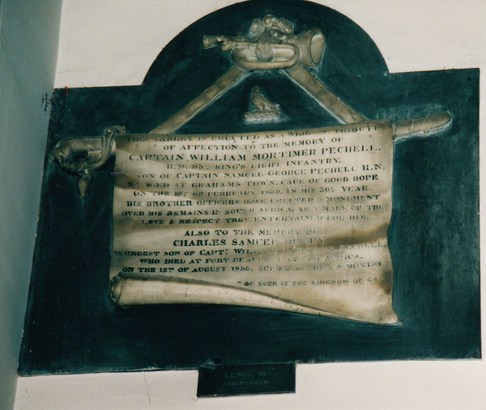 THIS TABLET IS ERECTED AS A WIDOW'S TRIBUTE
OF AFFECTION TO THE MEMORY OF
CAPTAIN WILLIAM MORTIMER PECHELL,
H.M. 85TH KING'S LIGHT INFANTRY,
SON OF CAPTAIN SAMUEL GEORGE PECHELL R.N.
DIED AT GRAHAMS TOWN, CAPE OF GOOD HOPE
ON THE OF FEBRUARY IN HIS YEAR.
HIS BROTHER OFFICERS HAVE ERECTED A MONUMENT
OVER HIS REMAINS IN SOUTH AFRICA, AS A MARK OF THE
LOVE & RESPECT THEY ENTERTAINED FOR HIM.
ALSO TO THE MEMORY OF
CHARLES SAMUEL
YOUNGEST SON OF CAPTN WILLIAM
WHO DIED AT FORT AFRICA,
ON THE 12TH OF AUGUST MONTHS
"OF SUCH IS THE KINGDOM OF
LEWIS,